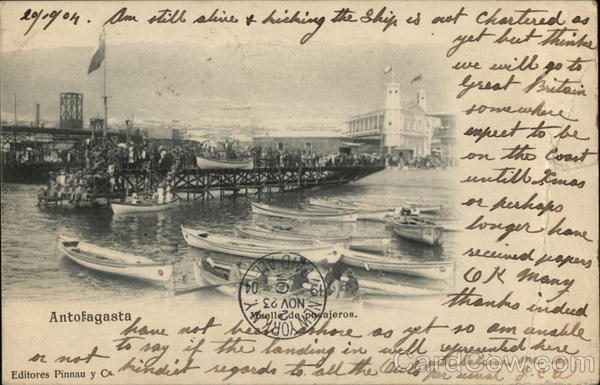 20/9/04. Am still alive & kicking the Ship is not Chartered as
yet but thinke
we will go to
Great Britain
somewhere
expect to be
on the Coast
untill Xmas
or perhaps
longer have
received papers
O K Many
thanks indeed
Antofagasta
Muelle de pasajeros.
NEW YORK, N.Y.
PAID ALL
NOV 23
1904
have not been ashore as yet so am unable
to say if the landing is well represented here
or not kindest regards to all the
as usual
Editores Pinnau y Ca.
CardCow.com